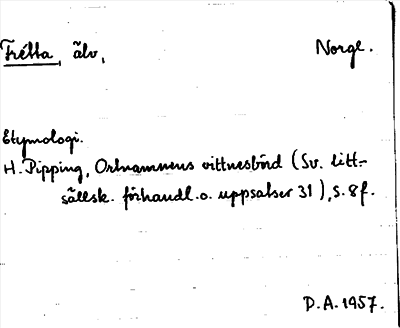 Frétta, älv, Norge.
Etymologi.
H. Pipping, Ortnamnens vittnesbörd (Sv. litt-
sällsk. förhandl. o. uppsatser 31), s. 8f.
D.A. 1957.